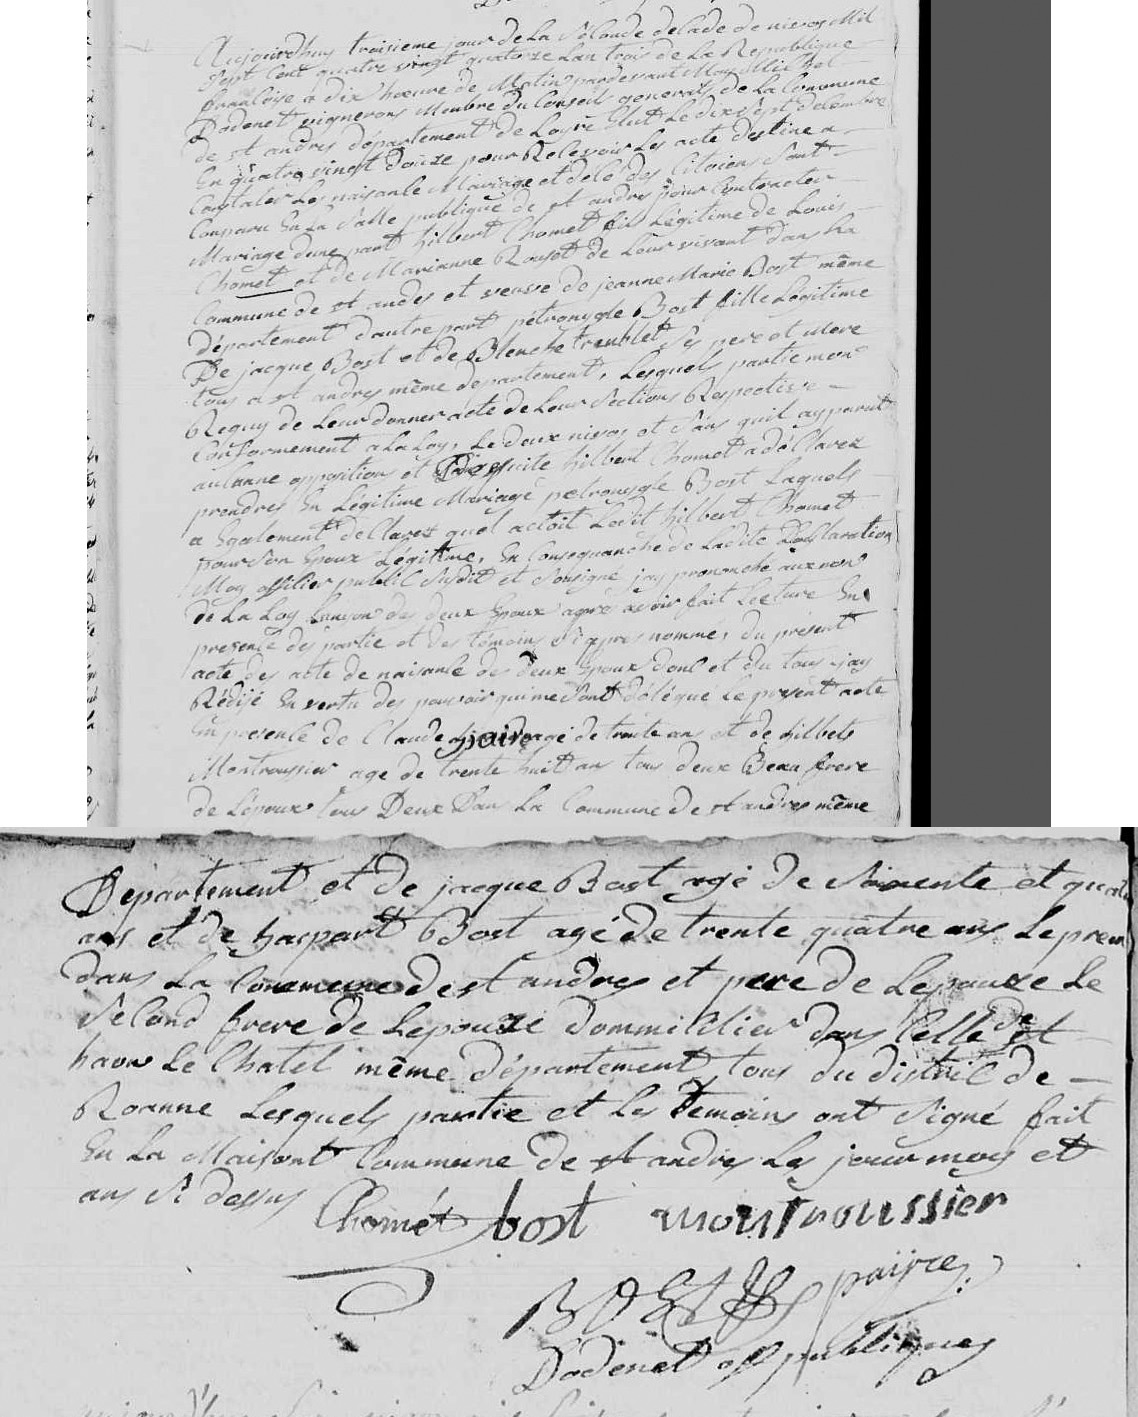 Aujourdhuy troisieme jour de La Seconde decade de nivos Mil
Sept Cent quatre vingt quatorze Lan trois de La Republique
francoise a dix hoeure de Matin pardevant Moy Michel
Dadenet vigneron Membre du Conseil general de La Commune
de st andres département de Loyre Elut Le dix sept decembre
En quatre vingt douze pour Recevoir Les acte destine a
Constater Les naisance Mariage et decé des Citoiens Sont
Comparu En La Salle publique de st andres pour Contracter
Mariage dune part hilbert Chomet fis Légitime de Louis
Chomet et de Marianne Rousot de Leur vivant dans La
Commune de st andes et veuve de jeanne Marie Bost même
département dautre part pétronygle Bost fille Légitime
De jacque Bost et de Blenche tremblet Ses pere et Mere
tous a st andres même département, Lesquels partie mon
Requy de Leur donner acte de Leur Sections Respective
Conformement a La Loy, Le deux nivos et Sans quil ay parut
aucanne opposition et De Suite hilbert Chomet a déClarez
prendres En Légitime Mariage petronygle Bost Laquels
a Egalement deClarez quel actoit Ledit hilbert Chomet
pour Son Epoux Légitime, En Consequanche de Ladite Declaration
Moy officier public Susdit et Sousigné jay prononché aux nom
de La Loy Lunyon des deux Epoux apré avoir fait Lecture En
presence des partie et des temoins Si apres nommé, du present
acte des acte de naisance des deux Epoux donc et du tous jay
Rédijé En vertu des pouvoir qui me Sont délégué Le present acte
En presence de Claude paire agé de trente ans et de hilbets
Montroussier age de trente huit an tous deux Beau frere
de Lépoux tous Deux Dan La Commune de st andres même
Département et de jacque Bost agé de Soixente et quatre
ans et de haspart Bost agé de trente quatre ans Le premi
dans La Commune de st andres et pere de Lepouze Le
Second frere de Lepouze dommicilier dans Celle de st
haon Le Chatel même département, tous du districC de
Roanne Lesquels partie et Les Temoins ont Signé fait
En La Maisont Commune de st andres Les jour mois et
ans Si dessus Chomét bost montroussier
BOST payre
Dadenet off publiques